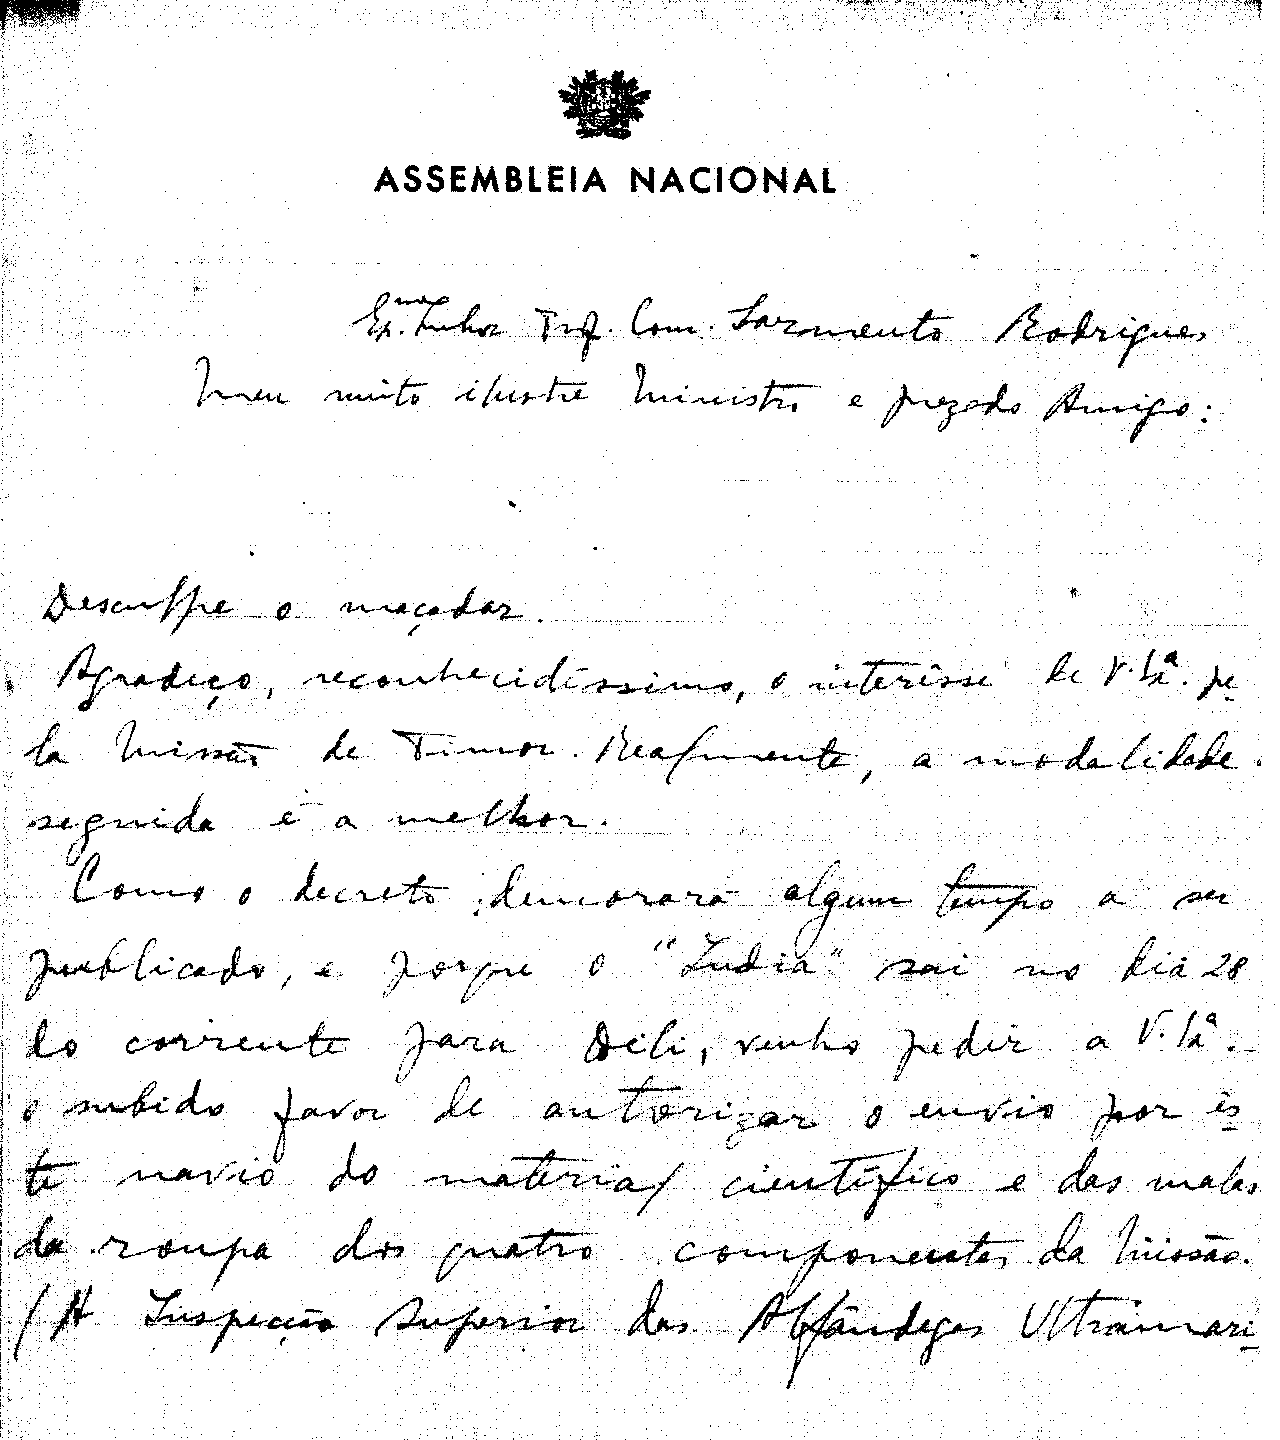 ASSEMBLEIA NACIONAL
Ex.mo Senhor Prof. Com. Sarmento Rodrigues
Meu muito ilustre Ministro e prezado Amigo:
Desculpe o maçador.
Agradeço, reconhecidíssimo, o interêsse de V. Exª. pe-
la Missão de Timor. Realmente, a modalidade
seguida é a melhor.
Como o decreto demorará algum tempo a ser
publicado, e porque o "India" sai no dia 28
do corrente para Dili, venho pedir a V. Exª.
o subido favor de autorizar o envio por ês-
te navio do material científico e das malas
da roupa dos quatro componentes da Missão.
/ A Inspecção Superior das Alfândegas Ultramari-